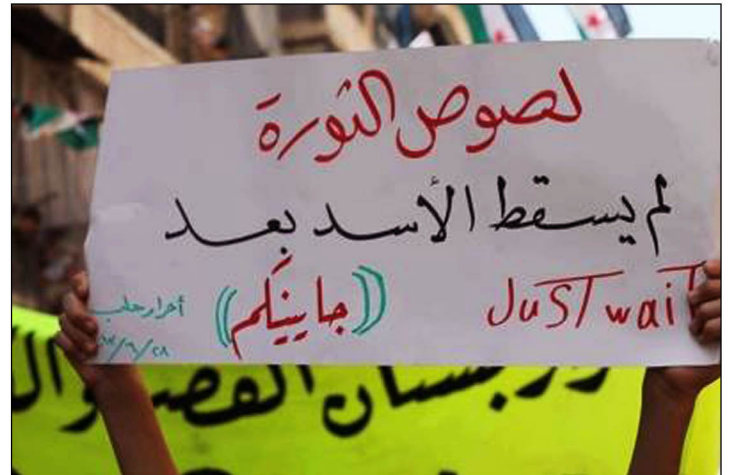 لصوص الثورة
لم يسقط الأسد بعد
JUST wait ((جايينكم))
أحرار حلب
بستان القصر